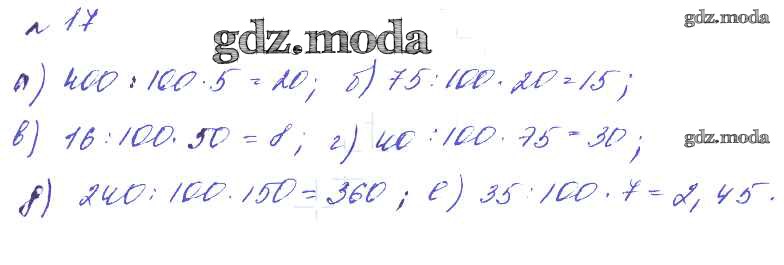 № 17
gdz.moda
gdz.moda
а) 400 : 100 · 5 = 20; б) 75 : 100 · 20 = 15;
в) 16 : 100 · 50 = 8; г) 40 : 100 · 75 = 30;
gdz.moda
д) 240 : 100 · 150 = 360; е) 35 : 100 · 7 = 2,45.